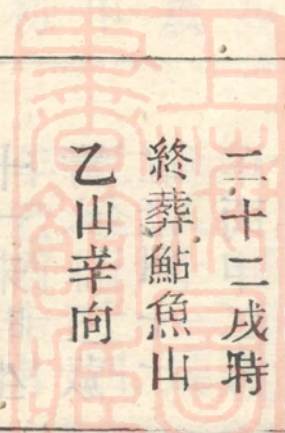 二十二戌時
終葬鮎魚山
乙山辛向